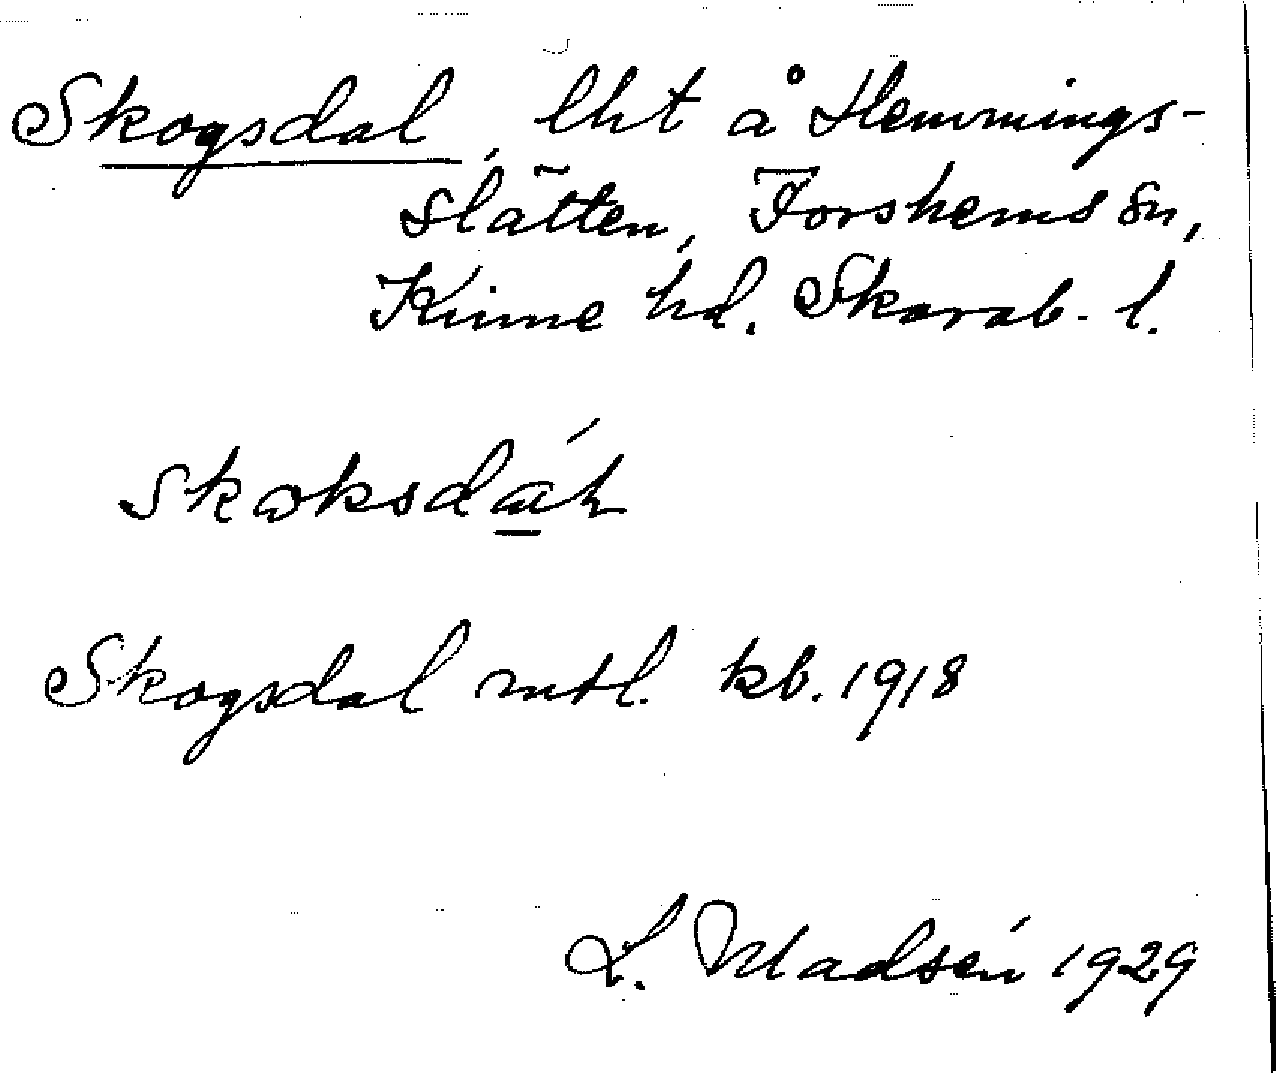 Skogsdal, lht å Hemmings-
slätten, Forshems sn,
Kinne hd. Skarab. l.
Skogsdal mtl. kb. 1918
L. Madsén 1929